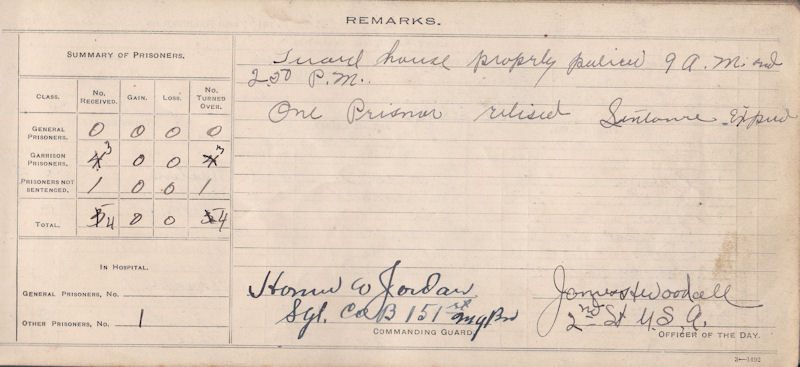 REMARKS.
SUMMARY OF PRISONERS.
CLASS. NO. RECEIVED. GAIN. LOSS. NO. TURNED OVER.
GENERAL PRISONERS. 0 0 0 0
GARRISON PRISONERS. 4 3 0 0 4 3
PRISONERS NOT SENTENCED. 1 0 0 1
TOTAL. 5 4 0 0 5 4
IN HOSPITAL.
GENERAL PRISONERS, NO.
OTHER PRISONERS, NO. 1
Guard house properly policed 9 A.M. and
2.50 P.M.
One Prisnor relised Sintance Expired
Homer W Jordan
Sgt. Co B 151st
COMMANDING GUARD.
James H Woodall
2nd Lt U.S.A.
OFFICER OF THE DAY.
3—1492